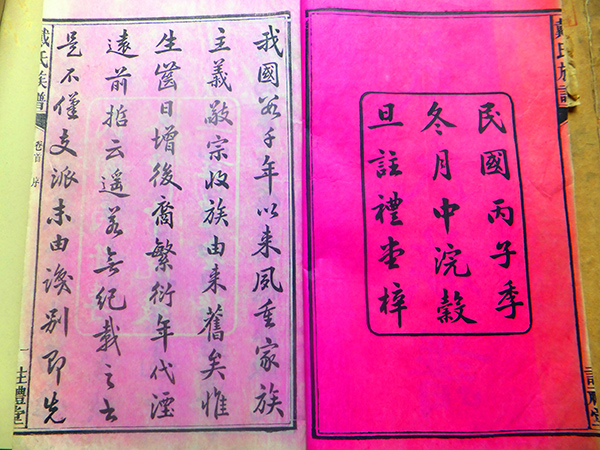 戴氏族譜
民國丙子季
冬月中浣穀
旦註禮堂梓
我國數千年以来夙重家族
主義敬宗收族由来舊矣惟
生齒日增後裔繁衍年代湮
遠前哲云遥若無紀載之書
是不僅支派末由識别即先
戴氏族譜
卷首 序
一
註禮堂